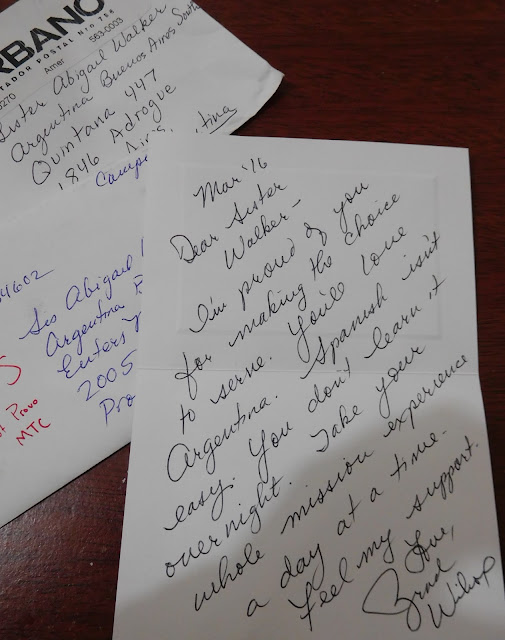 RBANO
TADOR POSTAL Nro PSP
0270
Amer
563-0003
Sister Abigail Walker
Argentina Buenos Aires South
Quintana 447
1846 Adrogue
54602
Sis Abigail
Argentina
Enters
2005
Pro
Provo
MTC
Mar '16
Dear Sister
Walker-
I'm proud of you
for making the choice
to serve. You'll love
Argentina. Spanish isn't
easy. You don't learn it
overnight. Take your
whole mission experience
a day at a time.
Feel my support.
Love,
Brad
Wilcox